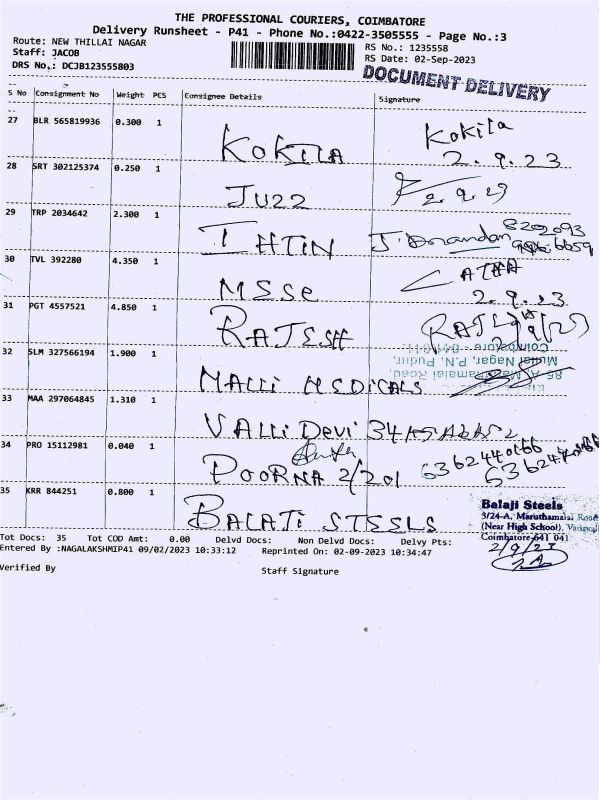 THE PROFESSIONAL COURIERS, COIMBATORE
Delivery Runsheet - P41 - Phone No.:0422-3505555 - Page No.:3
Route: NEW THILLAI NAGAR RS No.: 1235558
Staff: JACOB RS Date: 02-Sep-2023
DRS No.: DCJB123555803
DOCUMENT DELIVERY
S No Consignment No Weight PCS Consignee Details Signature
27 BLR 565819936 0.300 1 KOKILA Kokila
2.9.23
28 SRT 302125374 0.250 1 JUZZ 2.9.23
29 TRP 2034642 2.300 1 J. Anandan
30 TVL 392280 4.350 1 MSSe LATHA
2.9.23
31 PGT 4557521 4.850 1 RAJESH
32 SLM 327566194 1.900 1 MALLI MEDICALS
85, A, Maruthamalai Road,
Mullai Nagar, P.N. Pudur,
33 MAA 297064845 1.310 1 VALLi Devi
34 PRO 15112981 0.040 1 POORNA 2/201 6362440166
35 KRR 844251 0.800 1 BALAJI STEELS
Balaji Steels
3/24-A, Maruthamalai Road
(Near High School),
Coimbatore-641 041
2/9/23
Tot Docs: 35 Tot COD Amt: 0.00 Delvd Docs: Non Delvd Docs: Delvy Pts:
Entered By :NAGALAKSHMIP41 09/02/2023 10:33:12 Reprinted On: 02-09-2023 10:34:47
Verified By Staff Signature